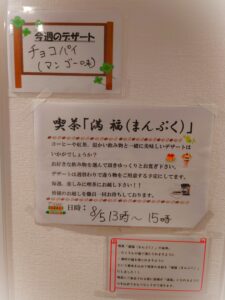 今週のデザート
チョコパイ
(マンゴー味)
喫茶「満福(まんぷく)」
コーヒーや紅茶、温かい飲み物と一緒に美味しいデザートは
いかがでしょうか?
お好きな飲み物を選んで頂きゆっくりとお寛ぎ下さい。
デザートは週替わりで違う物をご用意する予定にしてます。
毎週、楽しみに喫茶にお越し下さい!!
皆様のお越しを職員一同お待ちしております。
日時: 8/5 13時〜15時